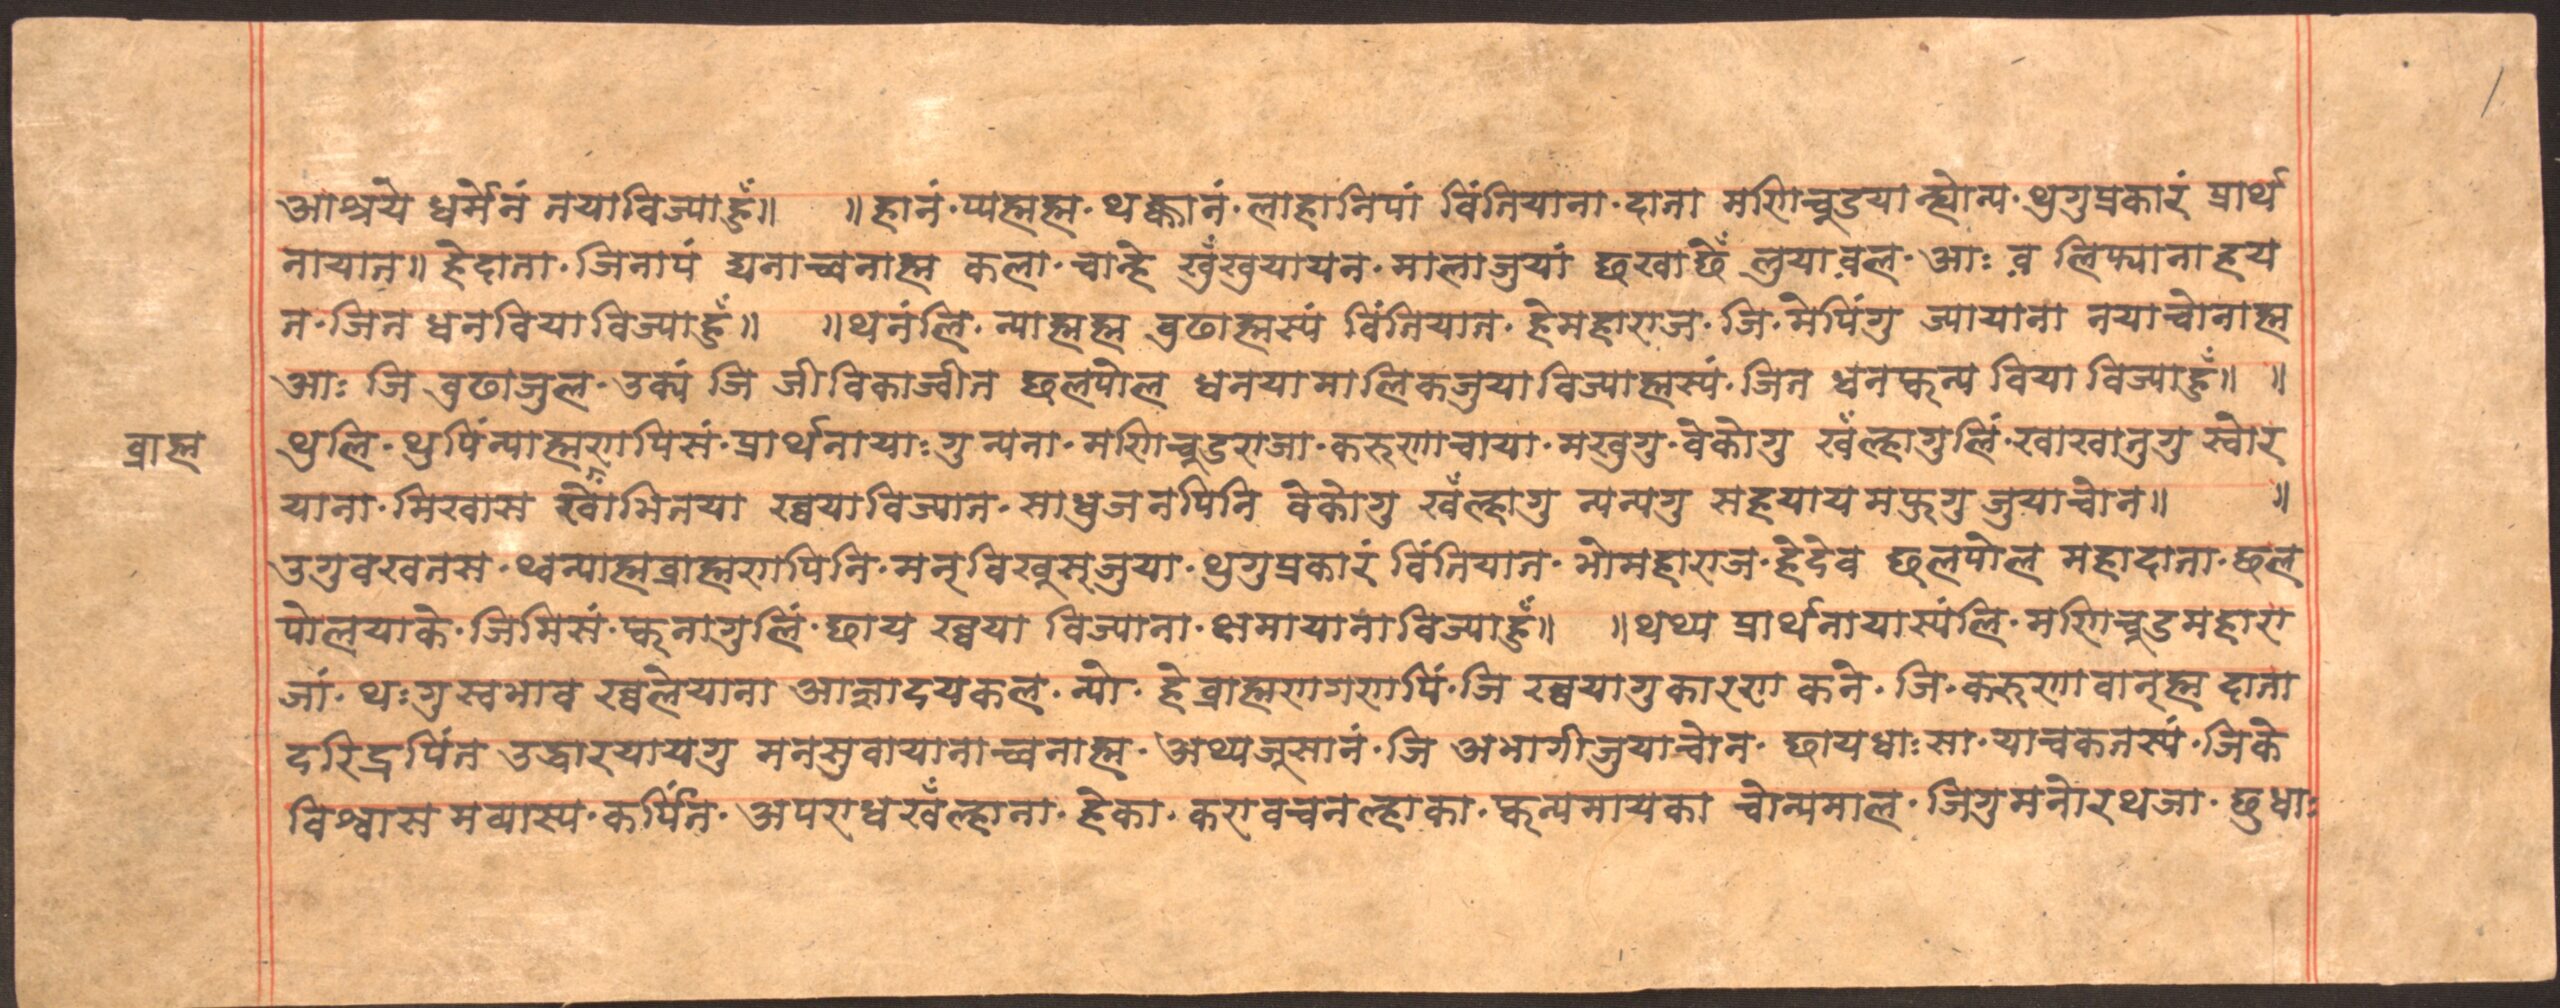 आश्रये धर्मेनं नयाविज्याहुँ॥ ॥हानं·प्यह्मह्म·थक्कानं·लाहानिपां विंतियाना·दाता मणिचूडया न्ह्योन्य·थुगुप्रकारं प्रार्थ
नायात॥हेदाता·जिनापं द्यनाच्वनाह्म कला·चान्हे खुँखुयायन·मालाजुयां छखाछेँ लुयावल·आः व लिफ्यानाहय
त·जित धनवियाविज्याहुँ॥ ॥थनंलि·न्याह्मह्म वुढाह्मस्यं विंतियात·हेमहाराज·जि·मेपिंगु ज्यायाना नयाच्वोनाह्म
आः जि वुढाजुल·उक्यं जि जीविकाज्वीत छलपोल धनयामालिकजुयाविज्याह्मस्यं·जित धनफ्कन्य वियाविज्याहुँ॥ ॥
ब्राह्म
थुलि·थुपिंन्याह्मणपिसं·प्रार्थनायाःगु न्यना·मणिचूडराजा·करुणाचाया·मखुगु·वेकोगु खँल्हागुलिं·खाखातुगु स्वोर
याना·मिखास ख्वोभितया ख्वयाविज्यात·साधुजनपिनि वेकोगु खँल्हागु न्यन्यगु सहयायमफुगु जुयाच्वोन॥ ॥
उगुवखतस·थ्वन्याह्मब्राह्मणपिनि·मन्‌विखुस्‌जुया·थुगुप्रकारं विंतियात·भोमहाराज·हेदेव छलपोल महादाता·छल
पोलयाके·जिमिसं·फ्कनागुलिं·छाय ख्वया विज्याना·क्षमायानाविज्याहुँ॥ ॥थथ्य प्रार्थनायास्यंलि·मणिचूडमहारा
जां·थःगुस्वभाव ख्वलेयाना आज्ञादयकल·न्यो·हेब्राह्मणगणपिं·जि ख्वयागुकारण कने·जि·करुणावान्‌ह्म दाता
दरिद्रपिंत उद्धारयायगु मनसुवायानाच्वनाह्म·अथ्यजूसानं·जि अभागीजुयाच्वोन·छायधाःसा·याचकतस्यं·जिके
विश्वास मव्यास्य·कपिंत·अपराधखँल्हाना·हेका·करावचनल्हाका·फ्कन्यमायका च्वोन्यमाल·जिगुमनोरथजा·छुधाः